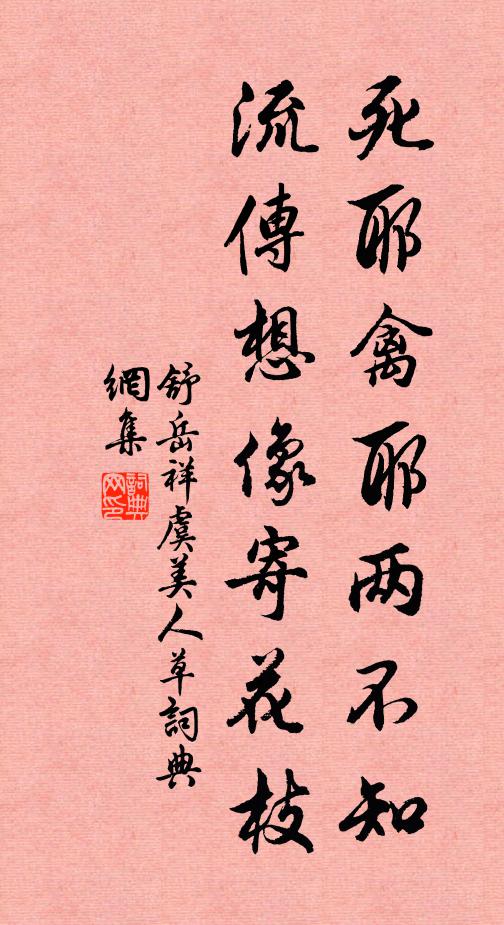 死耶禽耶两不知
流傳想像寄花枝
舒岳祥虞美人草詞典
網集
詞典
网印